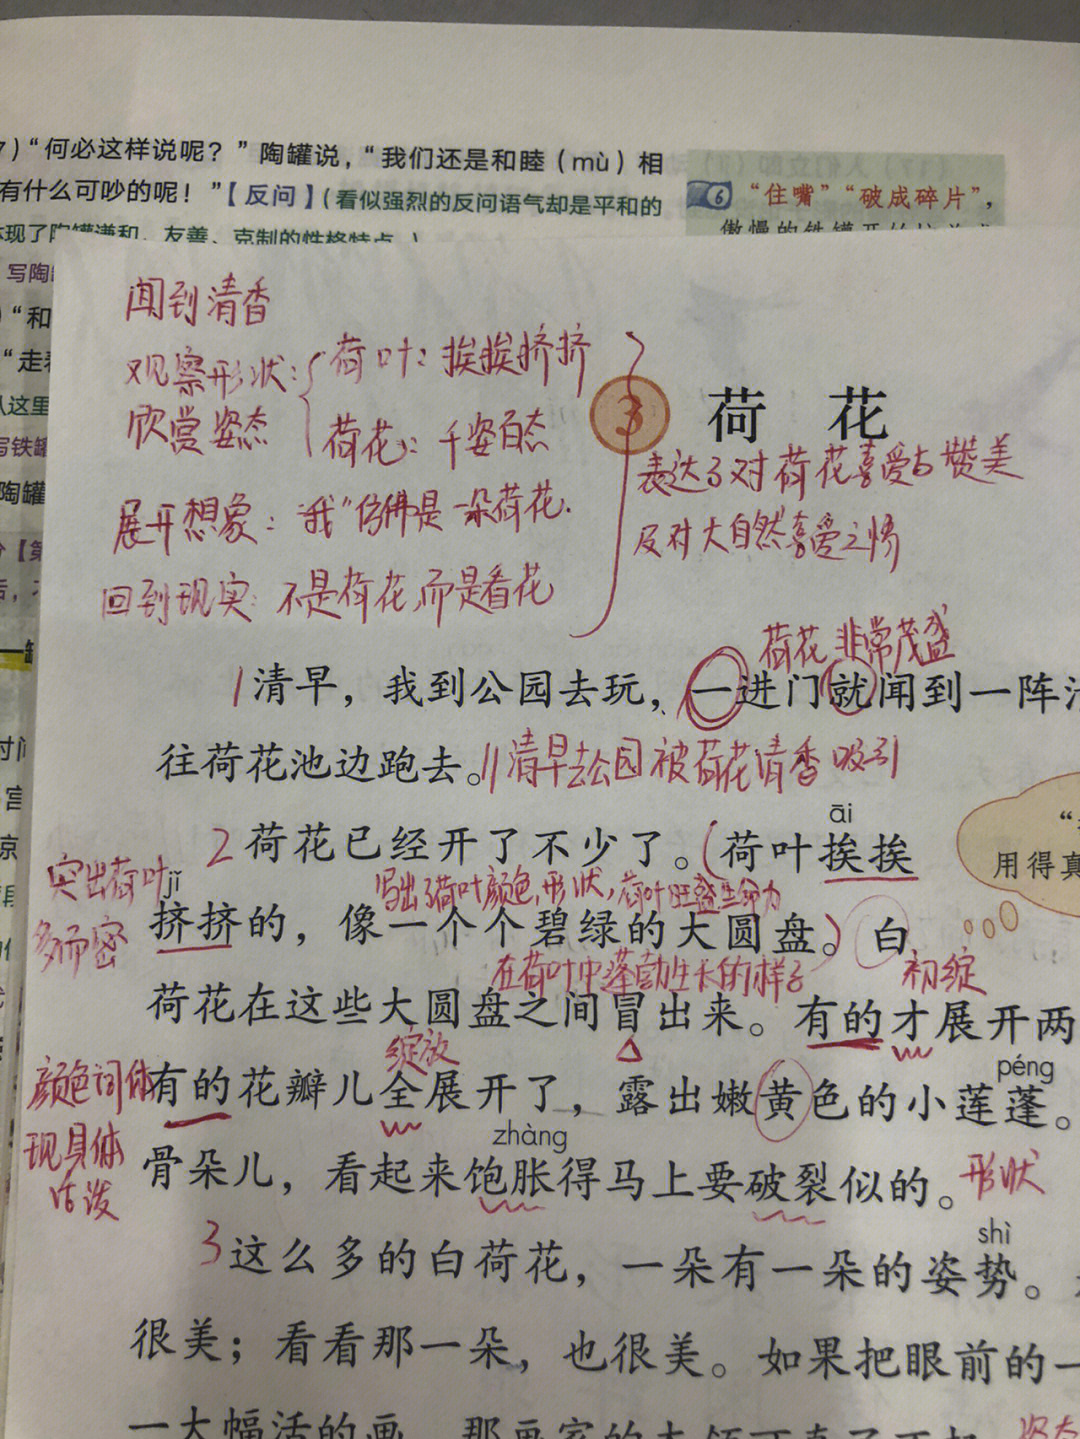 7）“何必这样说呢？”陶罐说，“我们还是和睦（mù）相
有什么可吵的呢！”【反问】（看似强烈的反问语气却是平和的
体现了陶罐谦和、友善、克制的性格特点。）
6 “住嘴”“破成碎片”，
写陶
“和
“走
从这里
写铁罐
陶罐
闻到清香
观察形状：
欣赏姿态
荷叶：挨挨挤挤
荷花：千姿百态
展开想象：“我”仿佛是一朵荷花.
回到现实：不是荷花,而是看花
3 荷花
表达了对荷花喜爱与赞美
及对大自然喜爱之情
荷花非常茂盛
1清早，我到公园去玩，一进门就闻到一阵清
往荷花池边跑去。//清早去公园被荷花清香吸引
āi
2荷花已经开了不少了。（荷叶挨挨
“
用得真
突出荷叶
多而密
jǐ
写出了荷叶颜色,形状,荷叶旺盛生命力
挤挤的，像一个个碧绿的大圆盘。）白
在荷叶中蓬勃生长的样子
初绽
荷花在这些大圆盘之间冒出来。有的才展开两
绽放
péng
颜色词体
现具体
活泼
有的花瓣儿全展开了，露出嫩黄色的小莲蓬。
zhàng
骨朵儿，看起来饱胀得马上要破裂似的。形状
shì
3这么多的白荷花，一朵有一朵的姿势。
很美；看看那一朵，也很美。如果把眼前的一
一大幅活的画，那画家的本领可真了不起。
姿态